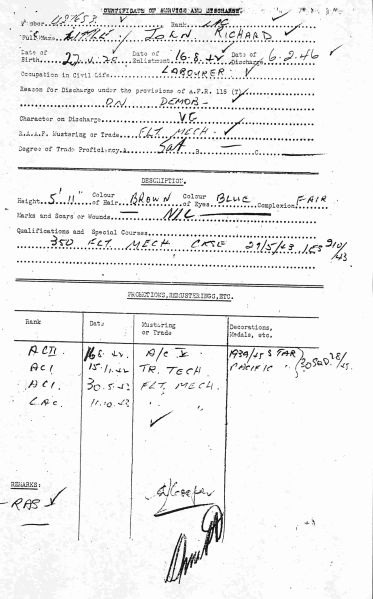 CERTIFICATE OF SERVICE AND DISCHARGE
Number Rank LAC
Full Name JOHN RICHARD
Date of Birth Date of Enlistment 16.5.42 Date of Discharge 6.2.46
Occupation in Civil Life LABOURER
Reason for Discharge under the provisions of A.F.R. 115 (T)
ON DEMOB
Character on Discharge VG
R.A.A.F. Mustering or Trade FLT MECH
Degree of Trade Proficiency A Sat B C
DESCRIPTION.
Height 5' 11" Colour of Hair BROWN Colour of Eyes BLUE Complexion FAIR
Marks and Scars or Wounds NIL
Qualifications and Special Courses
350 FLT MECH CRSE 29/5/43 1 ES 9/10/43
PROMOTIONS, REMUSTERINGS, ETC.
Rank Date Mustering or Trade Decorations, Medals, etc.
ACII 16.5.42 A/C 1939/45 STAR
AC1 15.11.42 TR. TECH PACIFIC "
AC1. 30.5.43 FLT. MECH.
LAC. 11.10.43 " "
REMARKS:
RAS